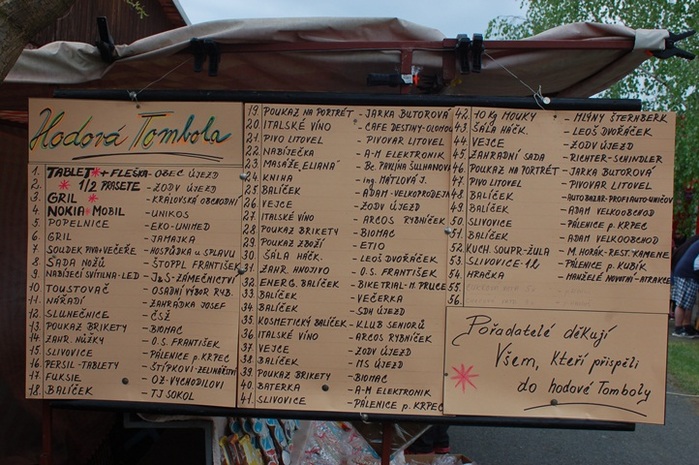 Hodová Tombola
1. TABLET + FLEŠKA - OBEC ÚJEZD
2. 1/2 PRASETE - ZODV ÚJEZD
3. GRIL - KRÁLOVSKÁ OBCHODNÍ
4. NOKIA MOBIL - UNIKOS
5. POPELNICE - EKO-UNIMED
6. GRIL - JAMAJKA
7. SOUDEK PIVA + VEČEŘE - HOSPŮDKA U SPLAVU
8. SADA NOŽŮ - ŠTOPPL FRANTIŠEK
9. NABÍJECÍ SVÍTILNA-LED - J&S-ZÁMEČNICTVÍ
10 TOUSTOVAČ - OSADNÍ VÝBOR RYB.
11. NÁŘADÍ - ZAHRÁDKA JOSEF
12. SLUNEČNICE - ČSŽ
13 POUKAZ BRIKETY - BIOMAC
14 ZAHR. NŮŽKY - O.S. FRANTIŠEK
15. SLIVOVICE - PÁLENICE p. KRPEC
16 PERSIL-TABLETY - ŠTÍPKOVI-ZELINÁŘSTVÍ
17. FUKSIE - OZ-VÝCHODILOVI
18. BALÍČEK - TJ SOKOL
19 POUKAZ NA PORTRÉT - JARKA BUTOROVÁ
20 ITALSKÉ VÍNO - CAFE DESTINY-OLOMOUC
21 PIVO LITOVEL - PIVOVAR LITOVEL
22 NABÍJEČKA - A-M ELEKTRONIK
23 MASÁŽE "ELIANA" - Bc. PAVLÍNA SULHANOVÁ
24 KNIHA - ing. MÁTLOVÁ J.
25 BALÍČEK - ADAM-VELKOPRODEJNA
26 VEJCE - ZODV ÚJEZD
27 ITALSKÉ VÍNO - ARCOS RYBNÍČEK
28 POUKAZ BRIKETY - BIOMAC
29 POUKAZ ZBOŽÍ - ETIO
30 ŠÁLA HÁČK. - LEOŠ DVOŘÁČEK
31 ZAHR. HNOJIVO - O.S. FRANTIŠEK
32 ENERG. BALÍČEK - BIKE TRIAL-M. PRUCEK
33 BALÍČEK - VEČERKA
34 BALÍČEK - SDH ÚJEZD
35 KOSMETICKÝ BALÍČEK - KLUB SENIORŮ
36 ITALSKÉ VÍNO - ARCOS RYBNÍČEK
37 VEJCE - ZODV ÚJEZD
38 BALÍČEK - MS ÚJEZD
39. POUKAZ BRIKETY - BIOMAC
40 BATERKA - A-M ELEKTRONIK
41. SLIVOVICE - PÁLENICE p. KRPEC
42 10 kg MOUKY - MLÝNY ŠTERNBERK
43 ŠÁLA HÁČK. - LEOŠ DVOŘÁČEK
44 VEJCE - ZODV ÚJEZD
45 ZAHRADNÍ SADA - RICHTER-SCHINDLER
46 POUKAZ NA PORTRÉT - JARKA BUTOROVÁ
47 PIVO LITOVEL - PIVOVAR LITOVEL
48 BALÍČEK - AUTOBAZAR-PROFI AUTO-UNIČOV
49 BALÍČEK - ADAM VELKOOBCHOD
50 SLIVOVICE - PÁLENICE p. KRPEC
51. BALÍČEK - ADAM VELKOOBCHOD
52 KUCH. SOUPR-ŽULA - M. HORÁK-REST. KAMENE
53 SLIVOVICE-12 - PÁLENICE p. KUBÍK
54 HRAČKA - MANŽELÉ NOVOTNÍ-ATRAKCE
55
56
Pořadatelé děkují
Všem, Kteří přispěli
do hodové Tomboly